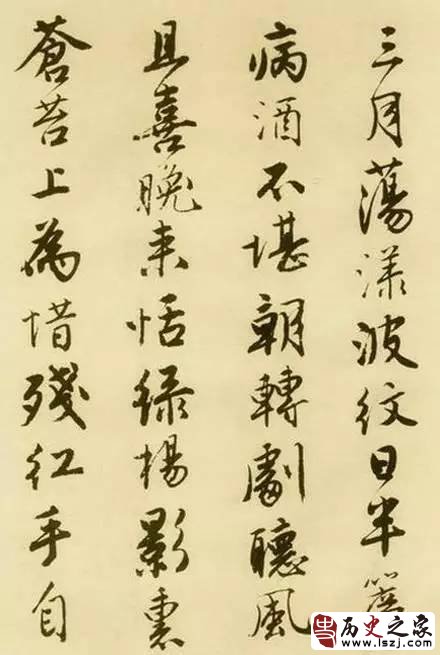 三月蕩漾波紋日半簾
病酒不堪朝轉劇聽風
且喜晚來恬綠楊影裏
蒼苔上為惜殘紅手自
史 历史之家
www.lszj.com